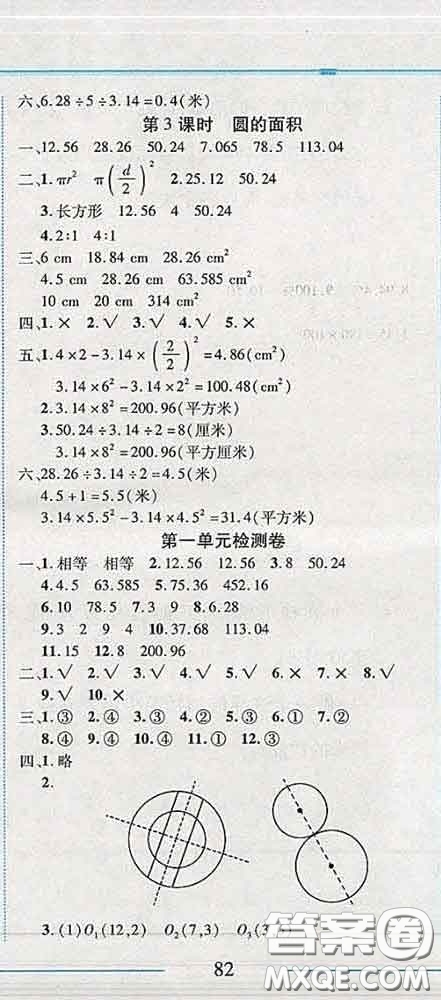 六、6.28÷5÷3.14=0.4(米)
第3课时 圆的面积
一、12.56 28.26 50.24 7.065 78.5 113.04
二、1.πr² π(d/2)² 2.25.12 50.24
3.长方形 12.56 4 50.24
4.2∶1 4∶1
三、6 cm 18.84 cm 28.26 cm²
4.5 cm 28.26 cm 63.585 cm²
10 cm 20 cm 314 cm²
四、1.× 2.√ 3.√ 4.√ 5.×
五、1.4×2-3.14×(2/2)²=4.86(cm²)
3.14×6²-3.14×2²=100.48(cm²)
2.3.14×8²=200.96(平方米)
3.50.24÷3.14÷2=8(厘米)
3.14×8²=200.96(平方厘米)
六、28.26÷3.14÷2=4.5(米)
4.5+1=5.5(米)
3.14×5.5²-3.14×4.5²=31.4(平方米)
第一单元检测卷
一、1.相等 相等 2.12.56 12.56 3.8 50.24
4.4.5 63.585 5.75.36 452.16
6.10 78.5 7.3 8.6.28
9.3 2 9 4 10.37.68 113.04
11.15 12.8 200.96
二、1.√ 2.√ 3.√ 4.√ 5.√ 6.× 7.× 8.√
9.√ 10.×
三、1.③ 2.④ 3.④ 4.② 5.③ 6.① 7.②
8.④ 9.④ 10.④ 11.③ 12.③
四、1.略
2.
3.(1)O₁(12,2) O₂(7,3) O₃(3,
82
答案圈
MXQE.COM